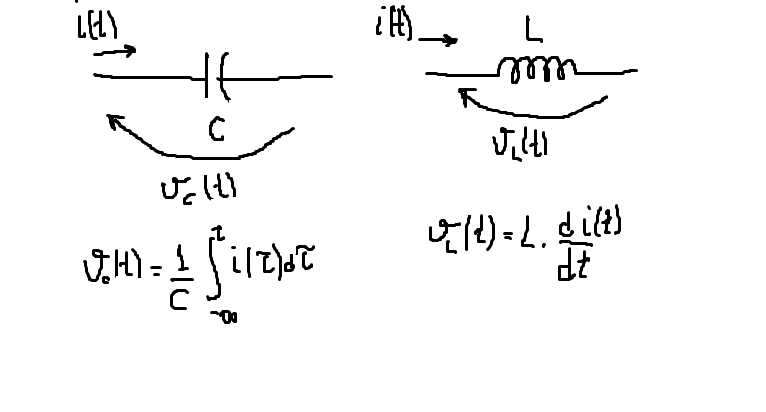 i(t)
C
v_c(t)
v_c(t) = 1/C ∫_{-∞}^{t} i(τ)dτ
i(t)
L
v_L(t)
v_L(t) = L · d i(t)/dt